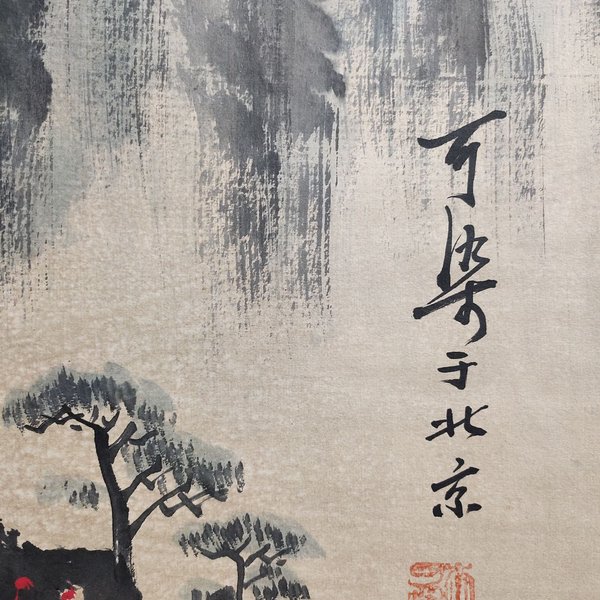 可染于北京